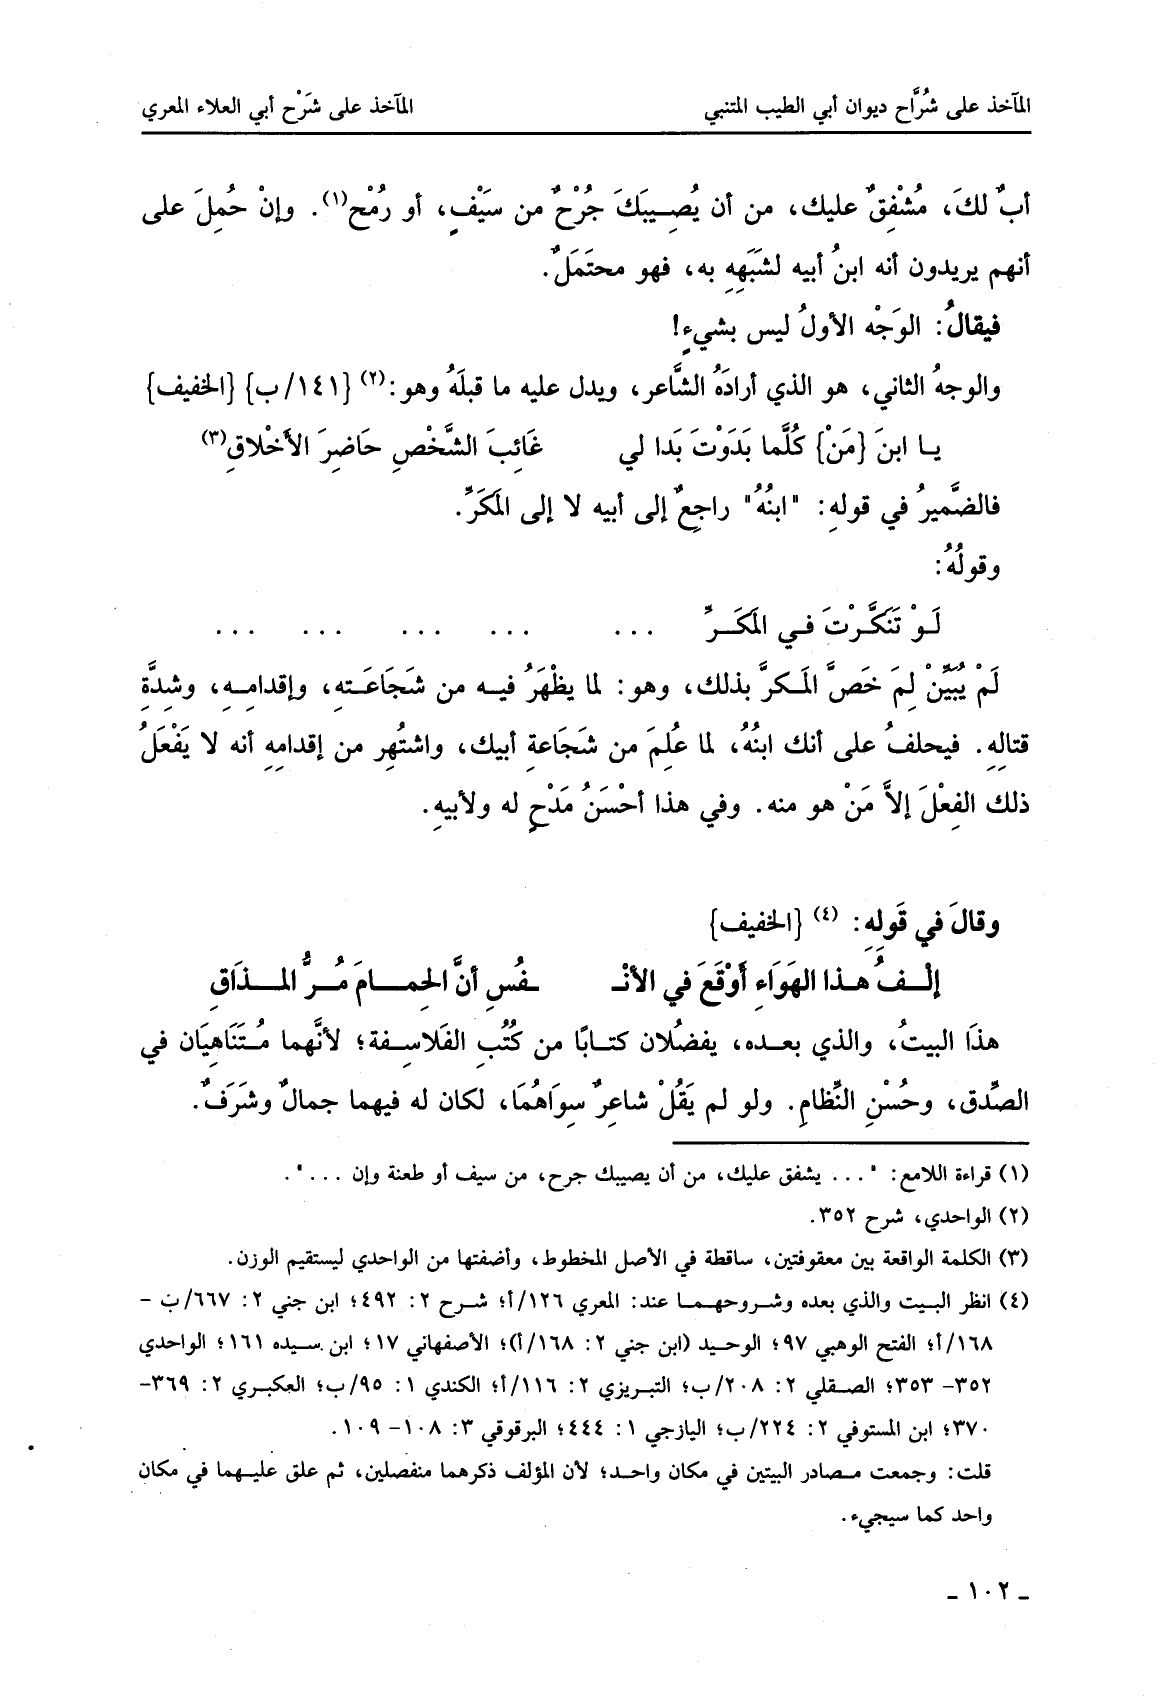 المآخذ على شُرَّاح ديوان أبي الطيب المتنبي المآخذ على شَرْح أبي العلاء المعري
أبٌ لكَ، مُشْفِقٌ عليك، من أن يُصِيبَكَ جُرْحٌ من سَيْفٍ، أو رُمْح(١). وإنْ حُمِلَ على
أنهم يريدون أنه ابنُ أبيه لشَبَهِهِ به، فهو محتَمَلٌ.
فيقالُ: الوَجْه الأولُ ليس بشيءٍ!
والوجهُ الثاني، هو الذي أرادَهُ الشَّاعر، ويدل عليه ما قبلَهُ وهو:(٢) {١٤١/ب} {الخفيف}
يـا ابنَ {مَنْ} كُلَّما بَدَوْتَ بَدا لي غَائِبَ الشَّخْصِ حَاضِرَ الأَخْلاقِ(٣)
فالضَّميرُ في قولهِ: "ابنُهُ" راجِعٌ إلى أبيه لا إلى المَكَرِّ.
وقولُهُ:
لَـوْ تَنَكَّرْتَ فـي المَكَـرِّ ... ... ... ... ...
لَمْ يُبَيِّنْ لِمَ خَصَّ المَـكرَّ بذلك، وهو: لما يظْهَرُ فيـه من شَجَاعَـتهِ، وإقدامِـهِ، وشِدَّةِ
قتالِهِ. فيحلفُ على أنك ابنُهُ، لما عُلِمَ من شَجَاعةِ أبيك، واشتُهِر من إقدامِهِ أنه لا يَفْعَلُ
ذلك الفِعْلَ إلاَّ مَنْ هو منه. وفي هذا أحْسَنُ مَدْحٍ له ولأبيهِ.
وقالَ في قَولِهِ: (٤) {الخفيف}
إلْـفُ هـذا الهَوَاءِ أَوْقَعَ في الأنْـ ـفُسِ أنَّ الحِمـامَ مُـرُّ المـذَاقِ
هذَا البيتُ، والذي بعـده، يفضُلان كتـابًا من كُتُبِ الفَلاسِـفة؛ لأنَّهما مُـتَنَاهِيَان في
الصِّدق، وحُسْنِ النِّظامِ. ولو لم يَقُلْ شاعِرٌ سِوَاهُمَا، لكان له فيهما جمالٌ وشَرَفٌ.
(١) قراءة اللامع: "... يشفق عليك، من أن يصيبك جرح، من سيف أو طعنة وإن ...".
(٢) الواحدي، شرح ٣٥٢.
(٣) الكلمة الواقعة بين معقوفتين، ساقطة في الأصل المخطوط، وأضفتها من الواحدي ليستقيم الوزن.
(٤) انظر البـيت والذي بعده وشـروحهمـا عند: المعري ١٢٦/أ؛ شـرح ٢: ٤٩٢؛ ابن جني ٢: ٦٦٧/ب -
١٦٨/أ؛ الفتح الوهبي ٩٧؛ الوحـيد (ابن جني ٢: ١٦٨/أ)؛ الأصفهاني ١٧؛ ابن سـيده ١٦١؛ الواحدي
٣٥٢- ٣٥٣؛ الصـقلي ٢: ٢٠٨/ب؛ التبـريزي ٢: ١١٦/أ؛ الكندي ١: ٩٥/ب؛ العكبـري ٢: ٣٦٩-
٣٧٠؛ ابن المستوفي ٢: ٢٢٤/ب؛ اليازجي ١: ٤٤٤؛ البرقوقي ٣: ١٠٨- ١٠٩.
قلت: وجمعت مـصادر البيتين في مكان واحـد؛ لأن المؤلف ذكرهما منفصلين، ثم علق عليـهما في مكان
واحد كما سيجيء.
- ١٠٢ -